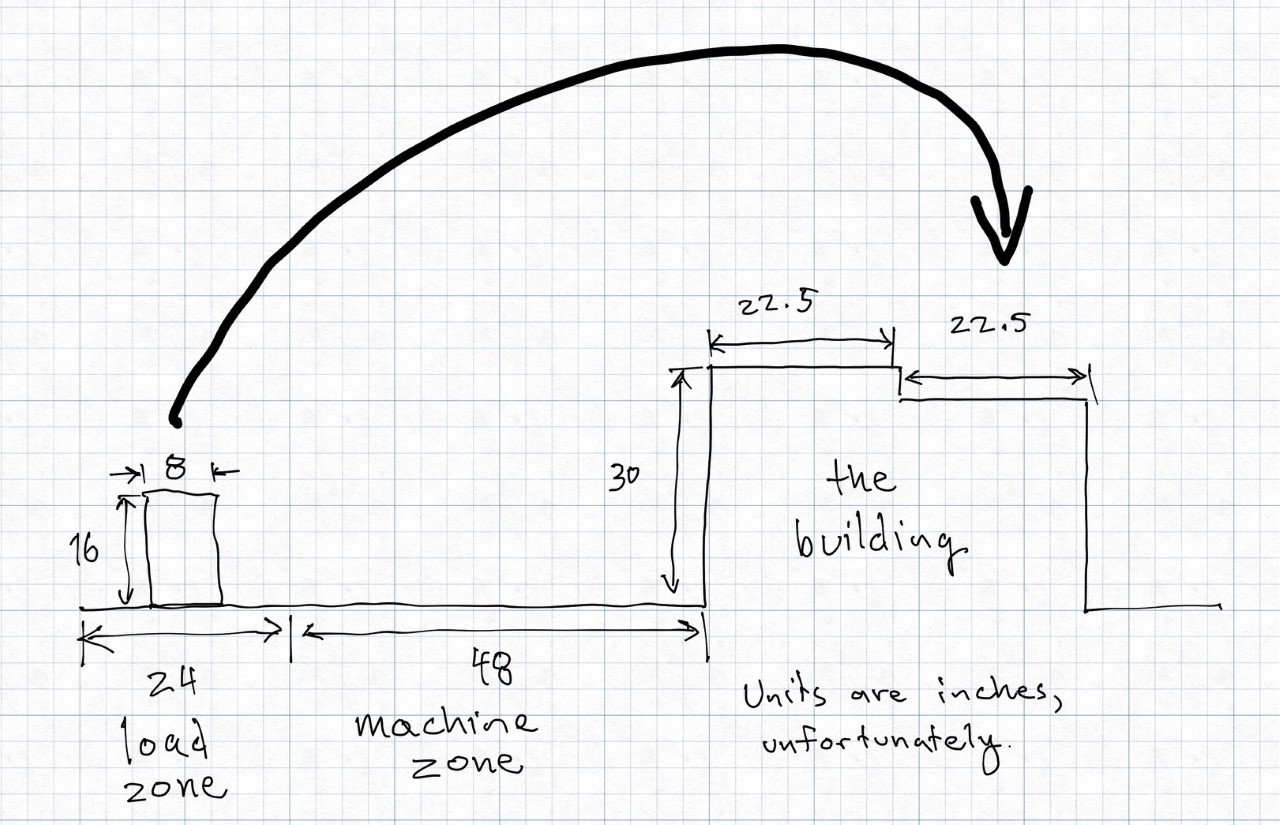 22.5
22.5
8
16
30
the
building
24
48
load
zone
machine
zone
Units are inches,
unfortunately.